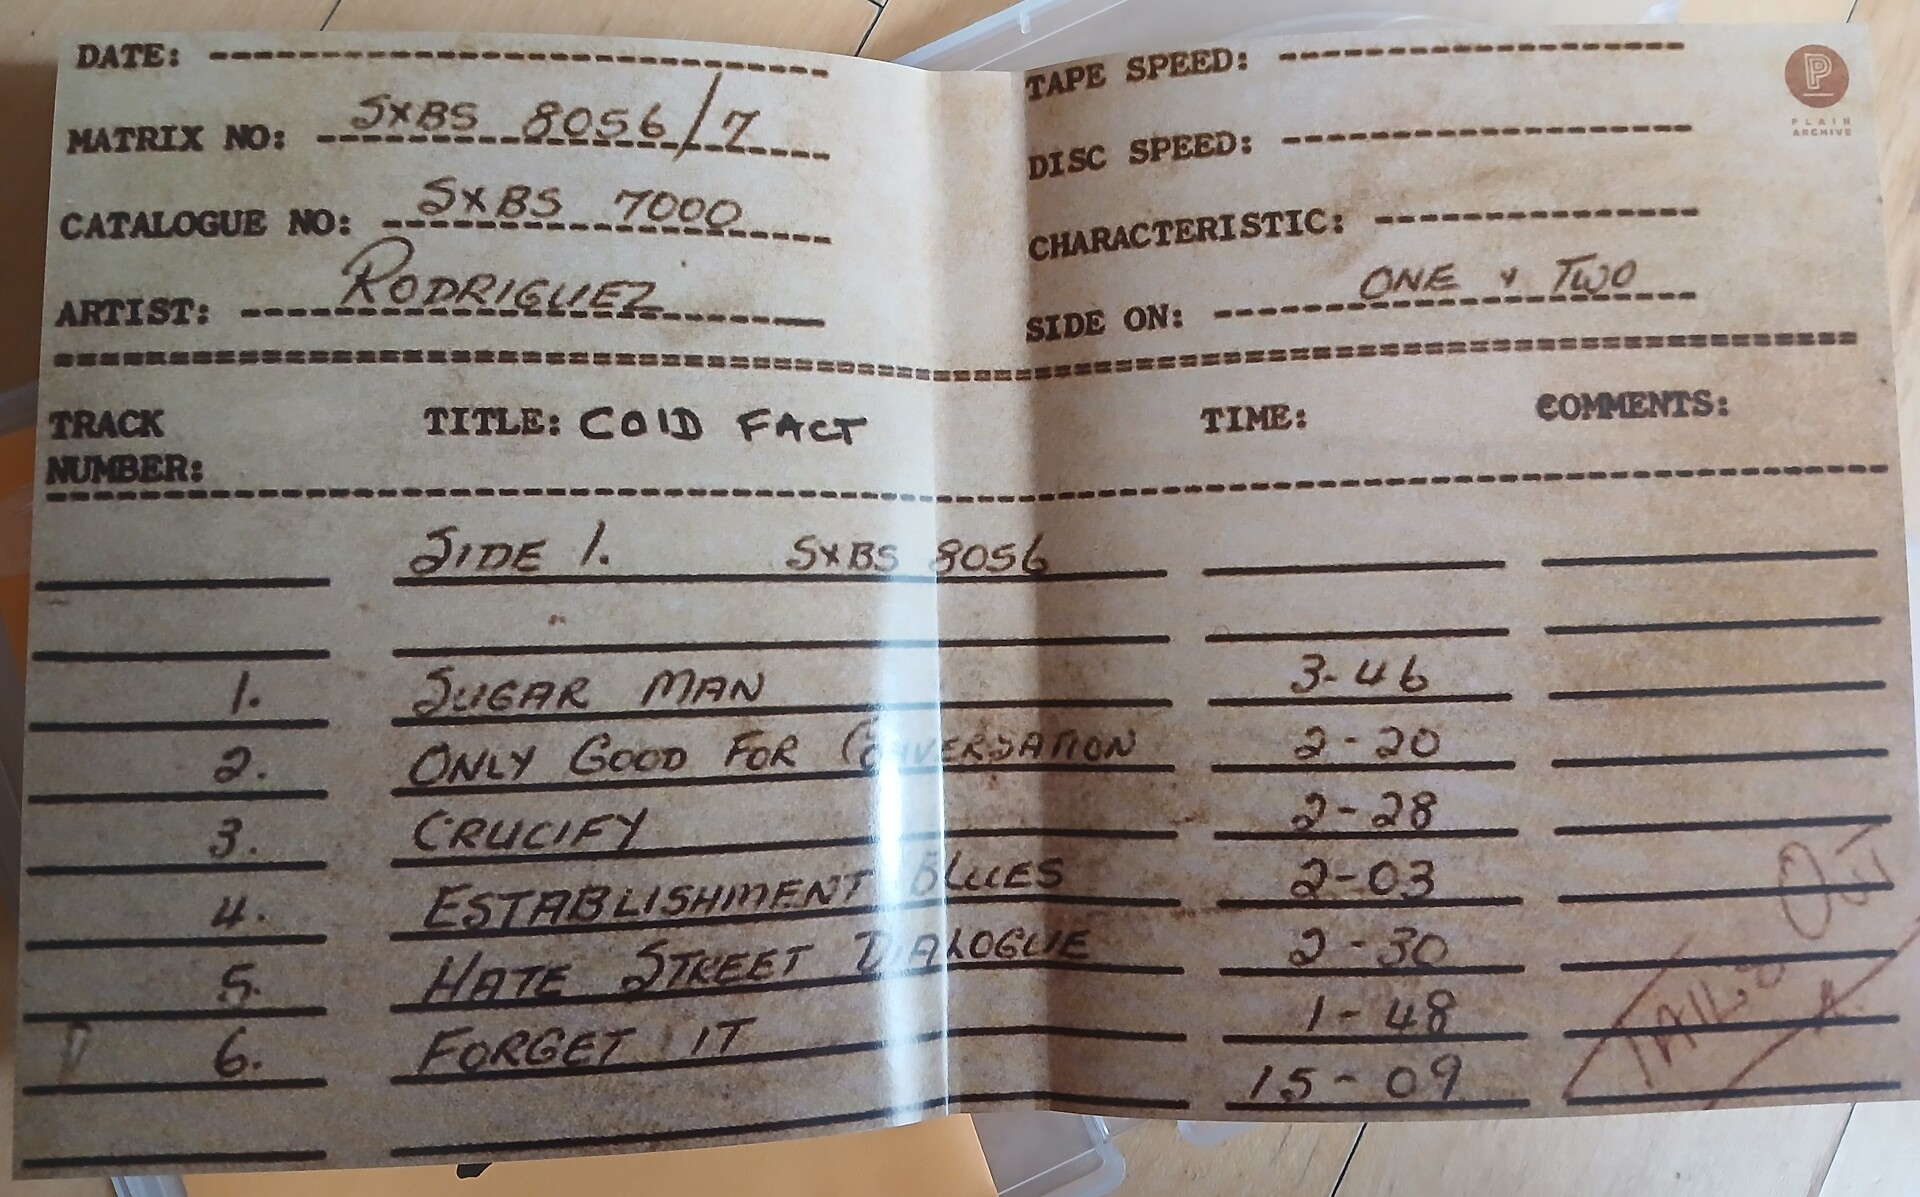 DATE:
TAPE SPEED:
P
PLAIN
ARCHIVE
MATRIX NO: SXBS 8056/7
DISC SPEED:
CATALOGUE NO: SXBS 7000
CHARACTERISTIC:
ARTIST: RODRIGUEZ
SIDE ON: ONE & TWO
TRACK NUMBER:
TITLE: COLD FACT
TIME:
COMMENTS:
SIDE 1. SXBS 8056
1. SUGAR MAN 3-46
2. ONLY GOOD FOR CONVERSATION 2-20
3. CRUCIFY 2-28
4. ESTABLISHMENT BLUES 2-03
5. HATE STREET DIALOGUE 2-30
6. FORGET IT 1-48
15-09
TAILS OUT